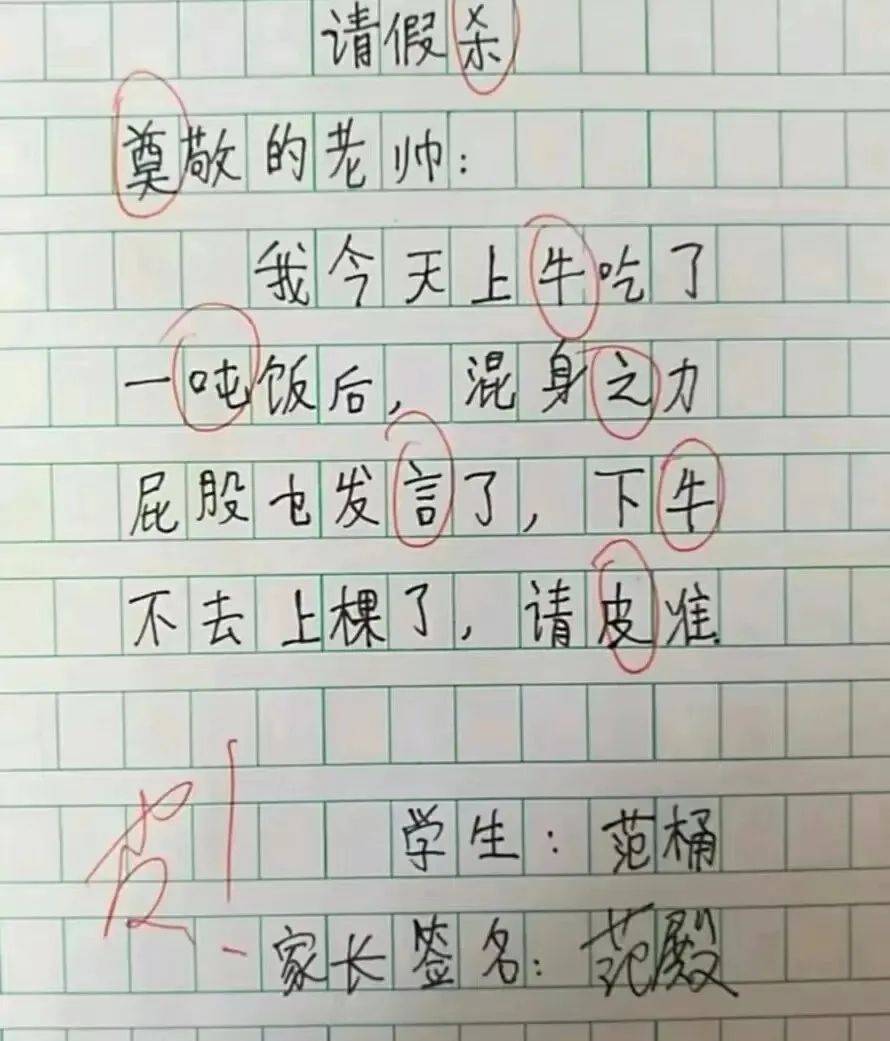 请假杀
奠敬的老帅：
我今天上牛吃了
一吨饭后，混身之力
屁股也发言了，下牛
不去上棵了，请皮准.
学生：范桶
家长签名：范殿